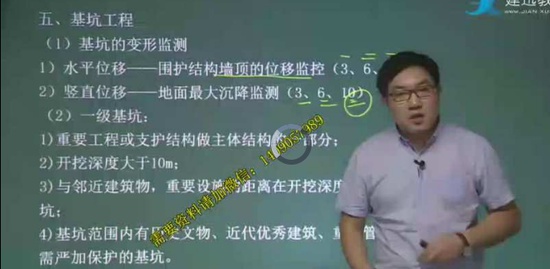 建迅教
五、基坑工程
(1)基坑的变形监测
1)水平位移——围护结构墙顶的位移监控(3、6、
2)竖直位移——地面最大沉降监测(3、6、10)
(2)一级基坑:
1)重要工程或支护结构做主体结构的一部分;
2)开挖深度大于10m;
3)与邻近建筑物,重要设施的距离在开挖深度
坑;
4)基坑范围内有历史文物、近代优秀建筑、重 管
需严加保护的基坑。
需要资料请加微信: